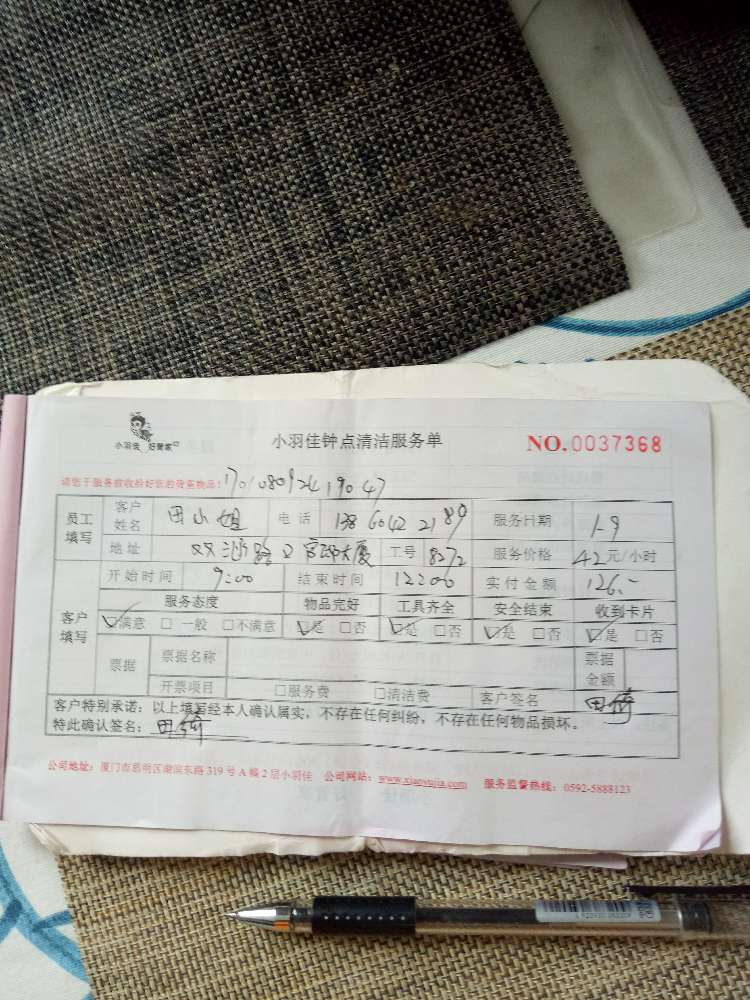 小羽佳 好管家
小羽佳钟点清洁服务单
NO.0037368
请您于服务前收拾好您的贵重物品! 170108092419047
员工填写 客户姓名 田小姐 电话 13860422189 服务日期 1.9
地址 大厦 工号 8272 服务价格 42元/小时
开始时间 9:00 结束时间 12:00 实付金额 126.-
客户填写 服务态度 物品完好 工具齐全 安全结束 收到卡片
☑满意 □ 一般 □不满意 ☑是 □否 ☑是 □否 ☑是 □否 ☑是 □否
票据 票据名称 票据金额
开票项目 □服务费 □清洁费 客户签名 田绮
客户特别承诺：以上填写经本人确认属实，不存在任何纠纷，不存在任何物品损坏。
特此确认签名：田绮
公司地址：厦门市思明区湖滨东路 319 号 A 幢 2 层小羽佳 公司网站：www.xiaoyujia.com 服务监督热线：0592-5888123